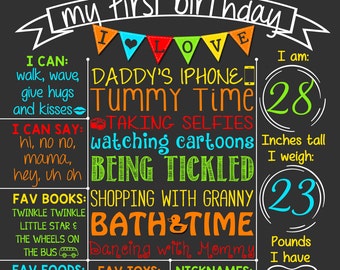 my first birthday
I ♥ LOVE
I CAN:
walk, wave,
give hugs
and kisses
I CAN SAY:
hi, no no,
mama,
hey, uh oh
FAV BOOKS:
TWINKLE TWINKLE
LITTLE STAR &
THE WHEELS ON
THE BUS
FAV FOODS:
DADDY'S IPHONE
TUMMY TIME
TAKING SELFIES
watching cartoons
BEING TICKLED
SHOPPING WITH GRANNY
BATH TIME
Dancing with Mommy
FAV TOYS:
NICKNAMES:
I am:
28
Inches tall
I weigh:
23
Pounds
I have